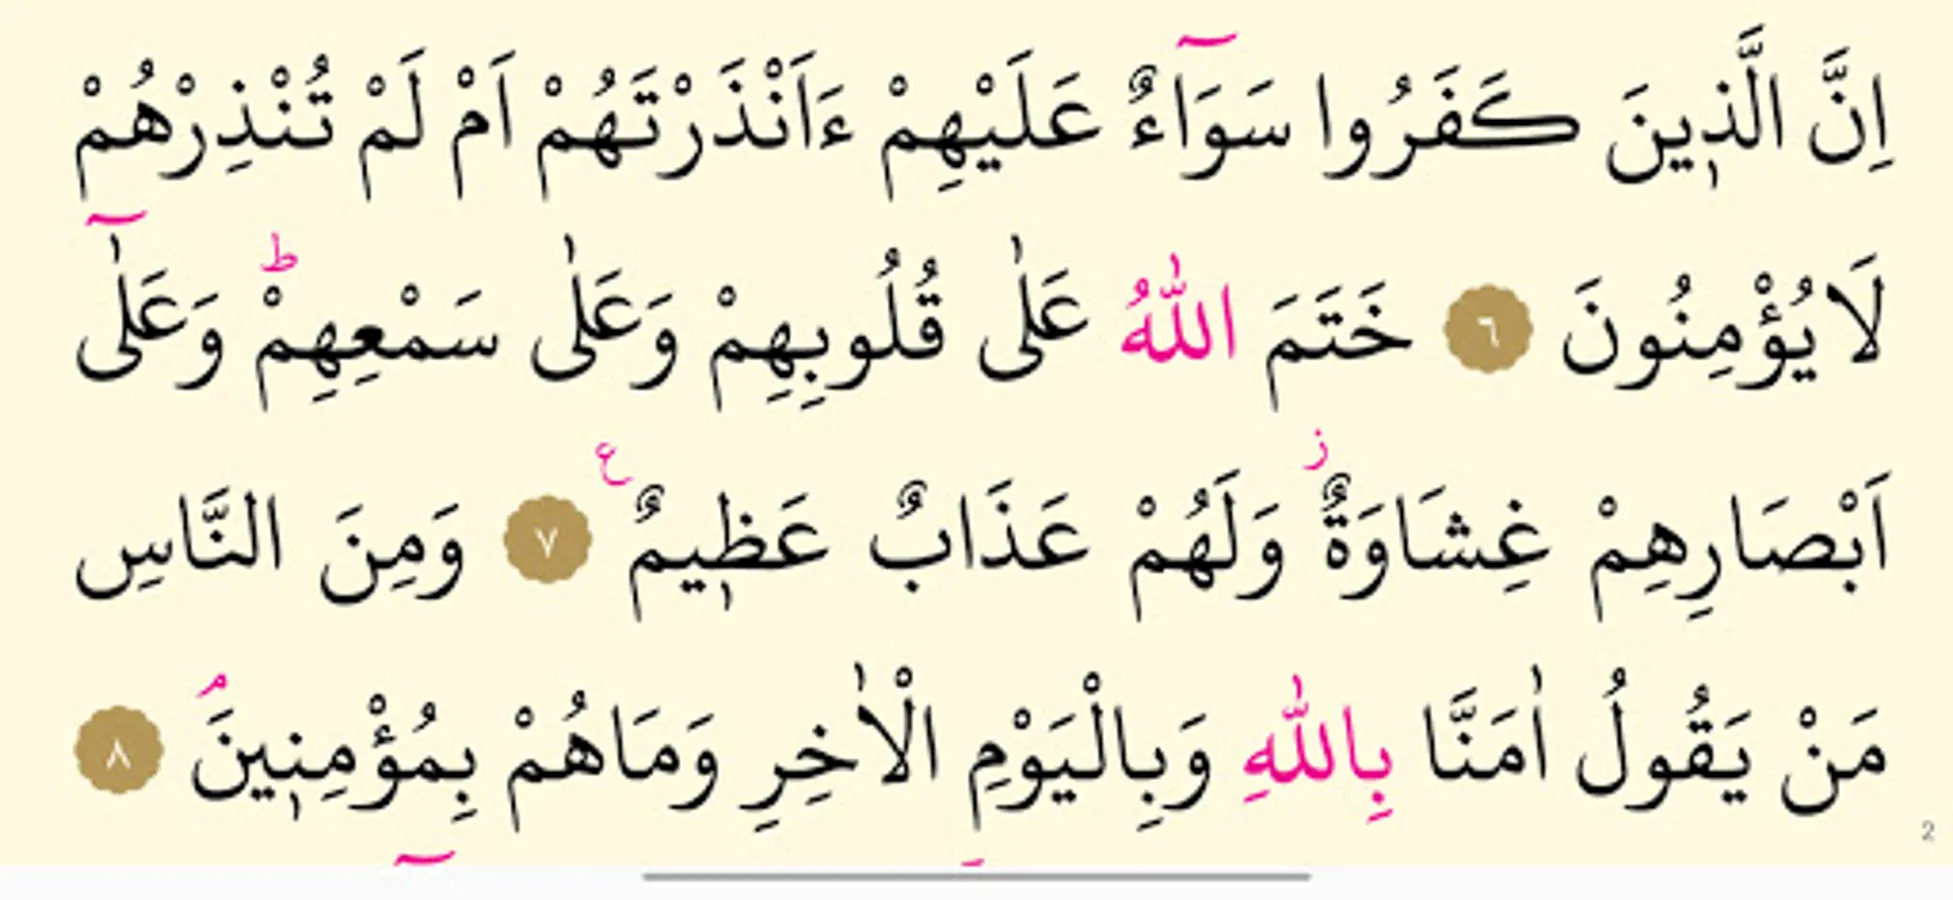 اِنَّ الَّذٖينَ كَفَرُوا سَوَٓاءٌ عَلَيْهِمْ ءَاَنْذَرْتَهُمْ اَمْ لَمْ تُنْذِرْهُمْ
لَا يُؤْمِنُونَ ٦ خَتَمَ اللّٰهُ عَلٰى قُلُوبِهِمْ وَعَلٰى سَمْعِهِمْؕ وَعَلٰٓى
اَبْصَارِهِمْ غِشَاوَةٌؗ وَلَهُمْ عَذَابٌ عَظٖيمٌ ع ٧ وَمِنَ النَّاسِ
مَنْ يَقُولُ اٰمَنَّا بِاللّٰهِ وَبِالْيَوْمِ الْاٰخِرِ وَمَاهُمْ بِمُؤْمِنٖينَۘ ٨
2